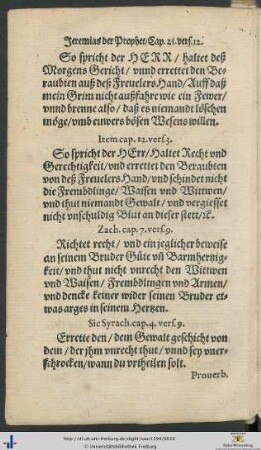 Jeremias der Prophet/Cap. 21. vers. 12.
So spricht der HERR / haltet deß
Morgens Gericht / vnnd errettet den Be⸗
raubten auß deß Freuelers Hand / Auff daß
mein Grim nicht außfahre wie ein Fewer /
vnnd brenne also / daß es niemandt löschen
möge / vmb euwers bösen Wesens willen.
Item cap. 22. vers. 3.
So spricht der HErr / Haltet Recht vnd
Gerechtigkeit / vnd errettet den Beraubten
von deß Freuelers Hand / vnd schindet nicht
die Frembdlinge / Waisen vnd Wittwen /
vnd thut niemandt Gewalt / vnd vergiesset
nicht vnschuldig Blut an dieser stett / ꝛc.
Zach. cap. 7. vers. 9.
Richtet recht / vnd ein jeglicher beweise
an seinem Bruder Güte vñ Barmhertzig⸗
keit / vnd thut nicht vnrecht den Wittwen
vnd Waisen / Frembdlingen vnd Armen /
vnd dencke keiner wider seinen Bruder et⸗
was arges in seinem Hertzen.
Sic Syrach. cap. 4. vers. 9.
Errette den / dem Gewalt geschicht von
dem / der jhm vnrecht thut / vnnd sey vner⸗
schrocken / wann du vrtheilen solt.
Prouerb.
© Universitätsbibliothek Freiburg